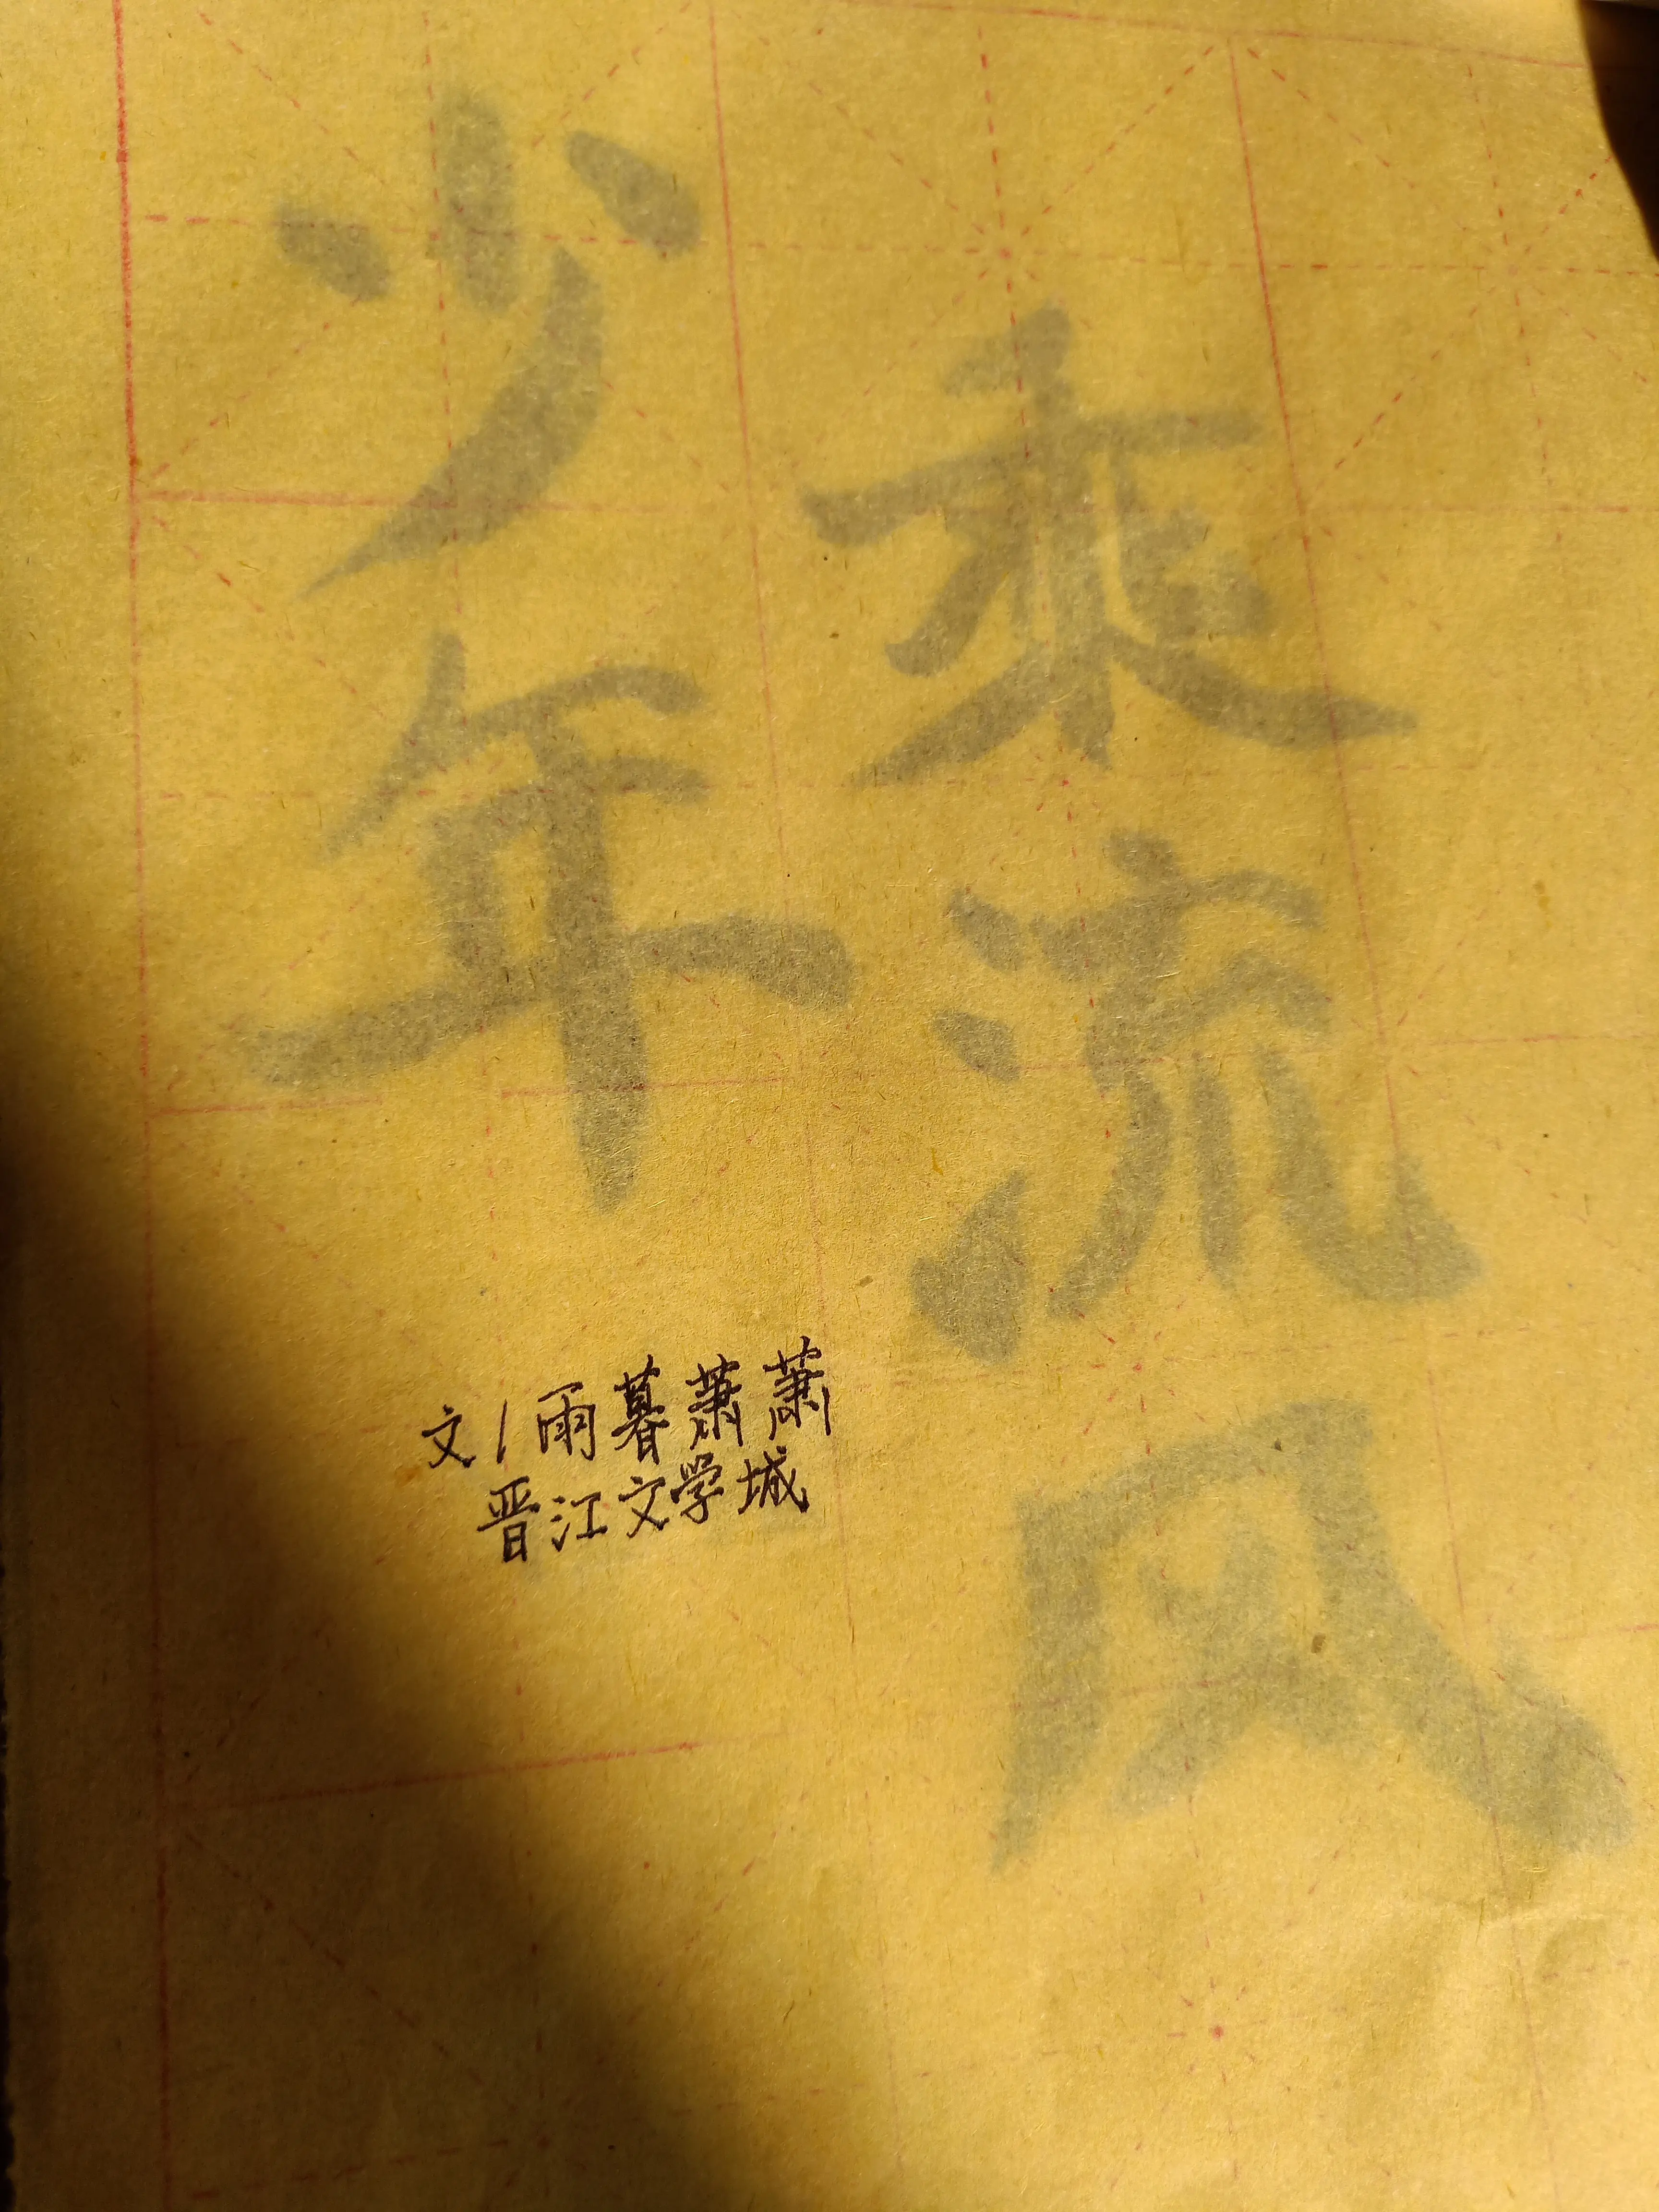 少年
乘流风
文/雨暮蕭蕭
晋江文学城